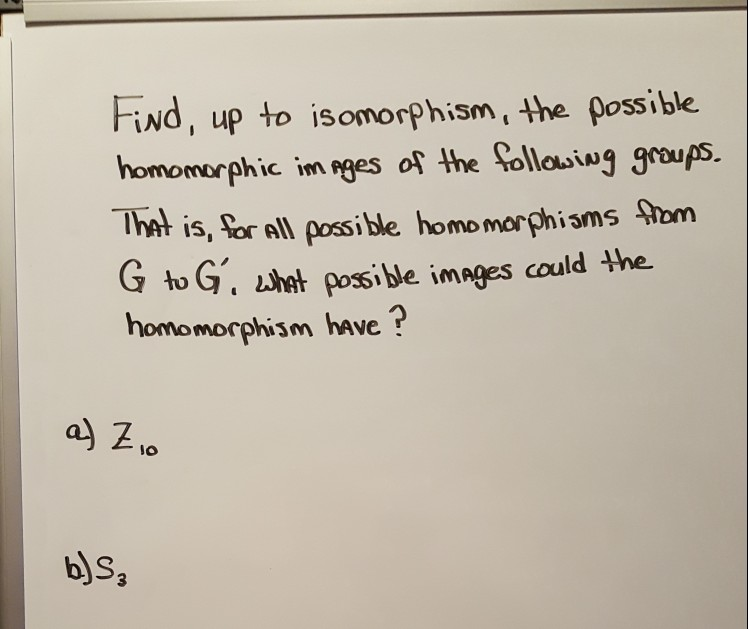 Find, up to isomorphism, the possible
homomorphic images of the following groups.
That is, for all possible homomorphisms from
G to G′, what possible images could the
homomorphism have?
a) Z₁₀
b) S₃